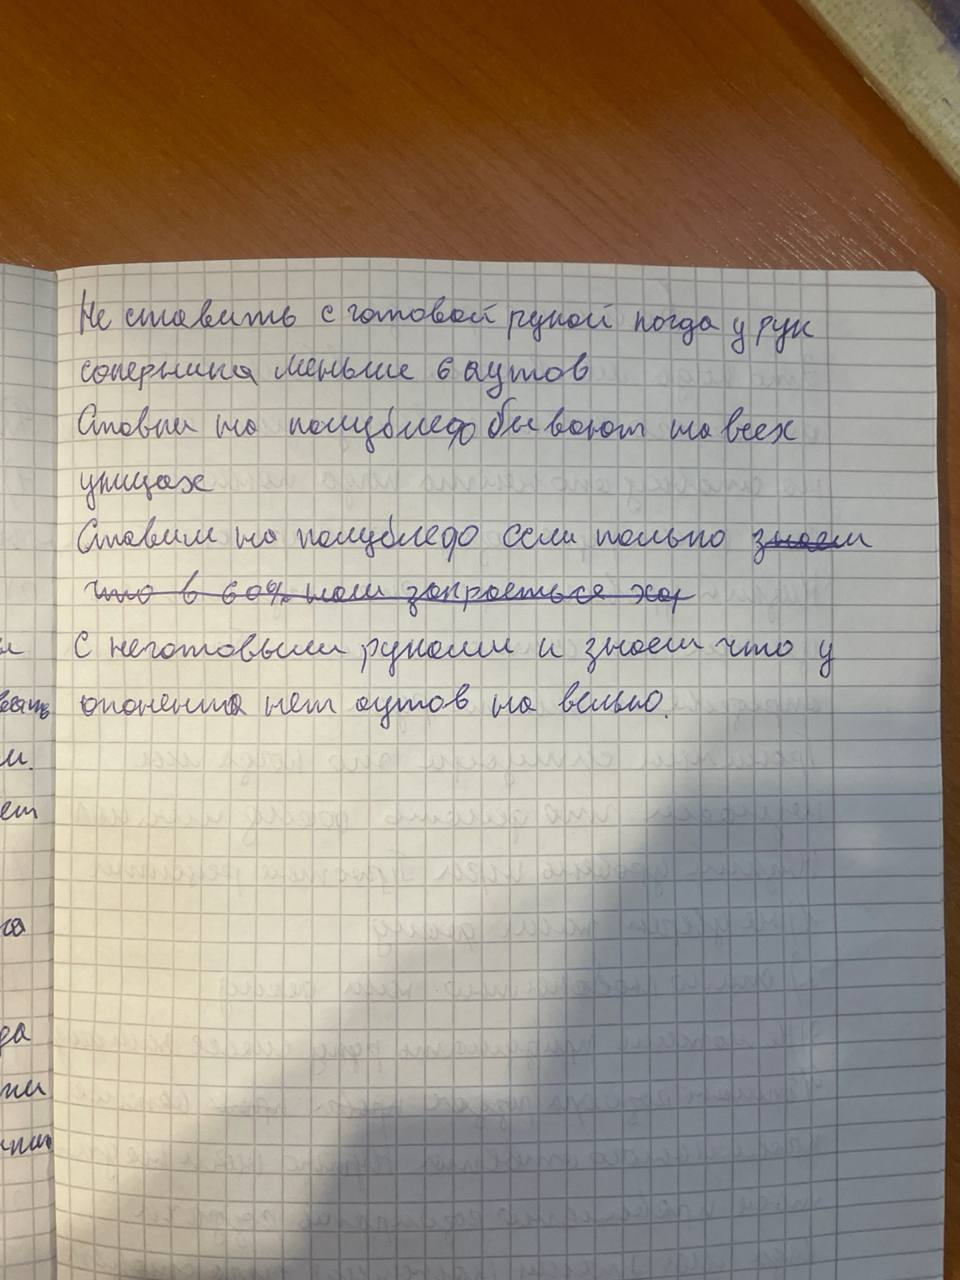 Не ставить с готовой рукой когда у рук
соперника меньше 6 аутов
Ставки на полублефо бывают на всех
улицах
Ставим на полублефо если только знаем
что в 60% нам
С неготовыми руками и знаем что у
опонента нет аутов на вельно.